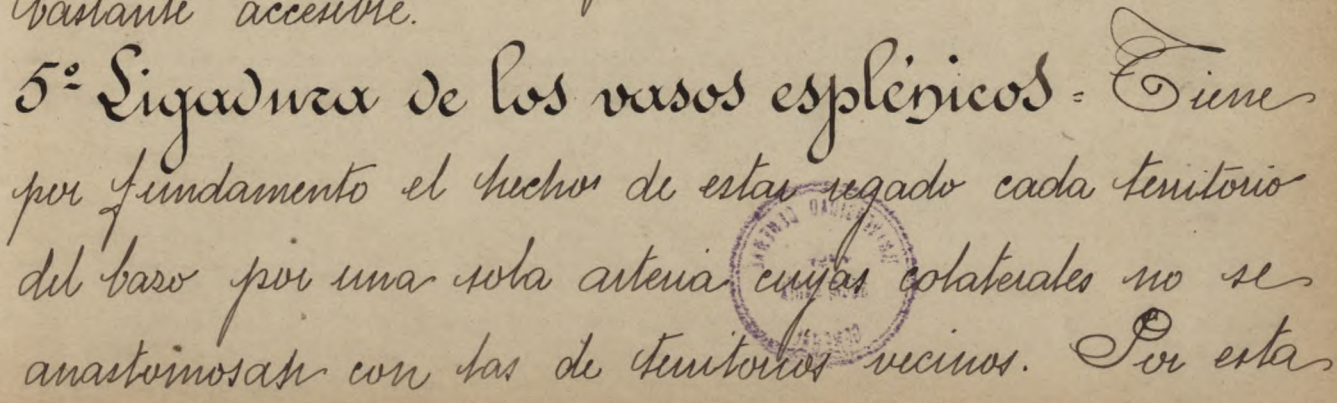 bastante accesible.
5º Ligadura de los vasos esplénicos = Tiene
por fundamento el hecho de estar regado cada territorio
del bazo por una sola arteria cuyas colaterales no se
anastomosan con las de territorios vecinos. Por esta